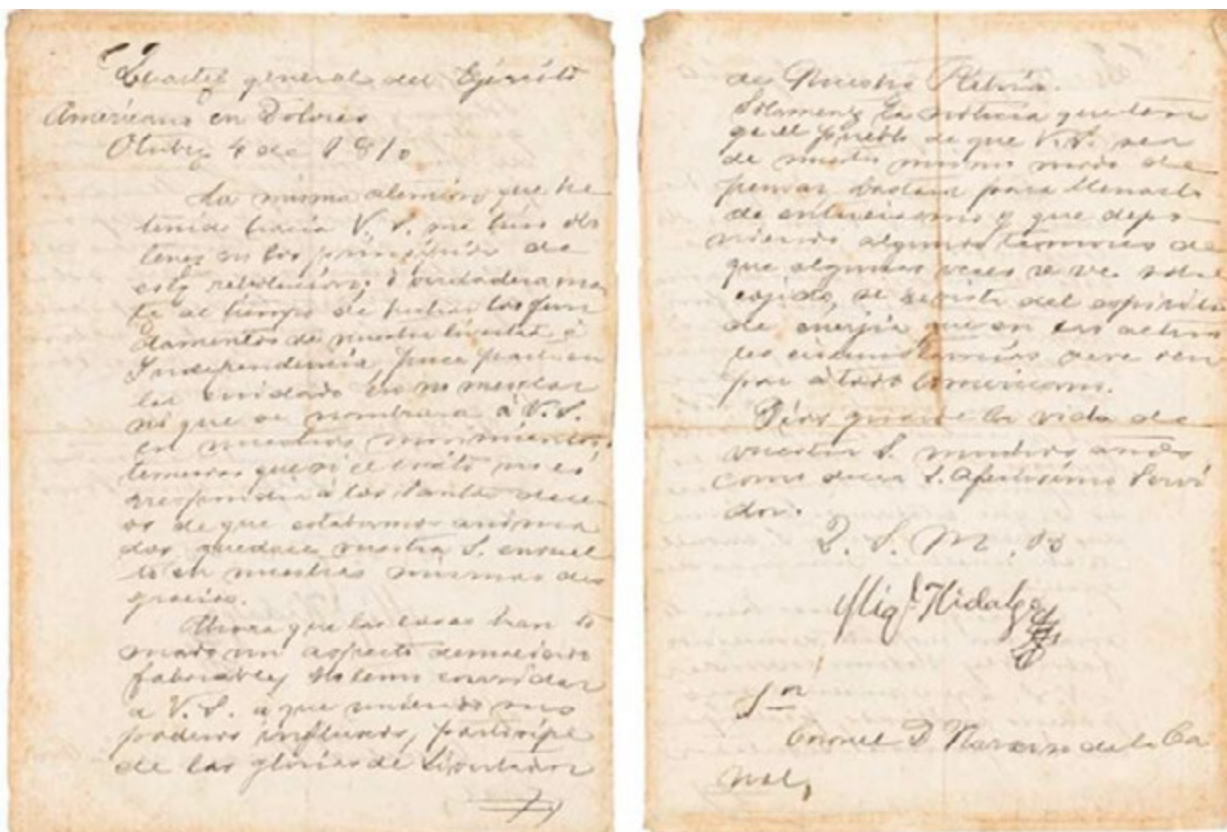 Cuartel general del Ejército
Américano en Dolores
Otubre 4 de 1810
La misma atención que he
tenido hacia V. S. me hiso ob
tener en los principios de
esta rebolución; ó verdaderame
te al tiempo de hechar los fun
damentos de nuestra livertad é
Yndependencia puse particu
lar cuidado en no mesclar
ni que se nombrara á V. S.
en nuestros movimientos,
temeroso que si el éxito no co
rrespondía á los santos dece
os de que estabamos anima
dos, quedace vuestra S. envuel
to en nuestras mismas des
gracias.
Ahora que las cosas han to
mado un aspecto demaciado
faborable, no temo convidar
a V. S. a que uniendo sus
poderoso influxo, participe
de las glorias de Livertador
de Nuestra Patria.
Solamente la noticia que tenga
el pueblo de que V. S. sea
de nuestro mismo modo de
pensar, bastará para llenarlo
de entuciasmo y que depo
niendo algunos temores de
que algunas veces se ve sobre
cojido, se revista del espíritu
de enerjía que en las actua
les circunstancias
á todo Américano.
Dios guarde la vida de
vuestra S. muchos años
como decea S. Afectísimo Servi
dor.
Q. S. M. B
Mig.l Hidalgo
Sor
Coronel D Narciso de la Ca
nal,